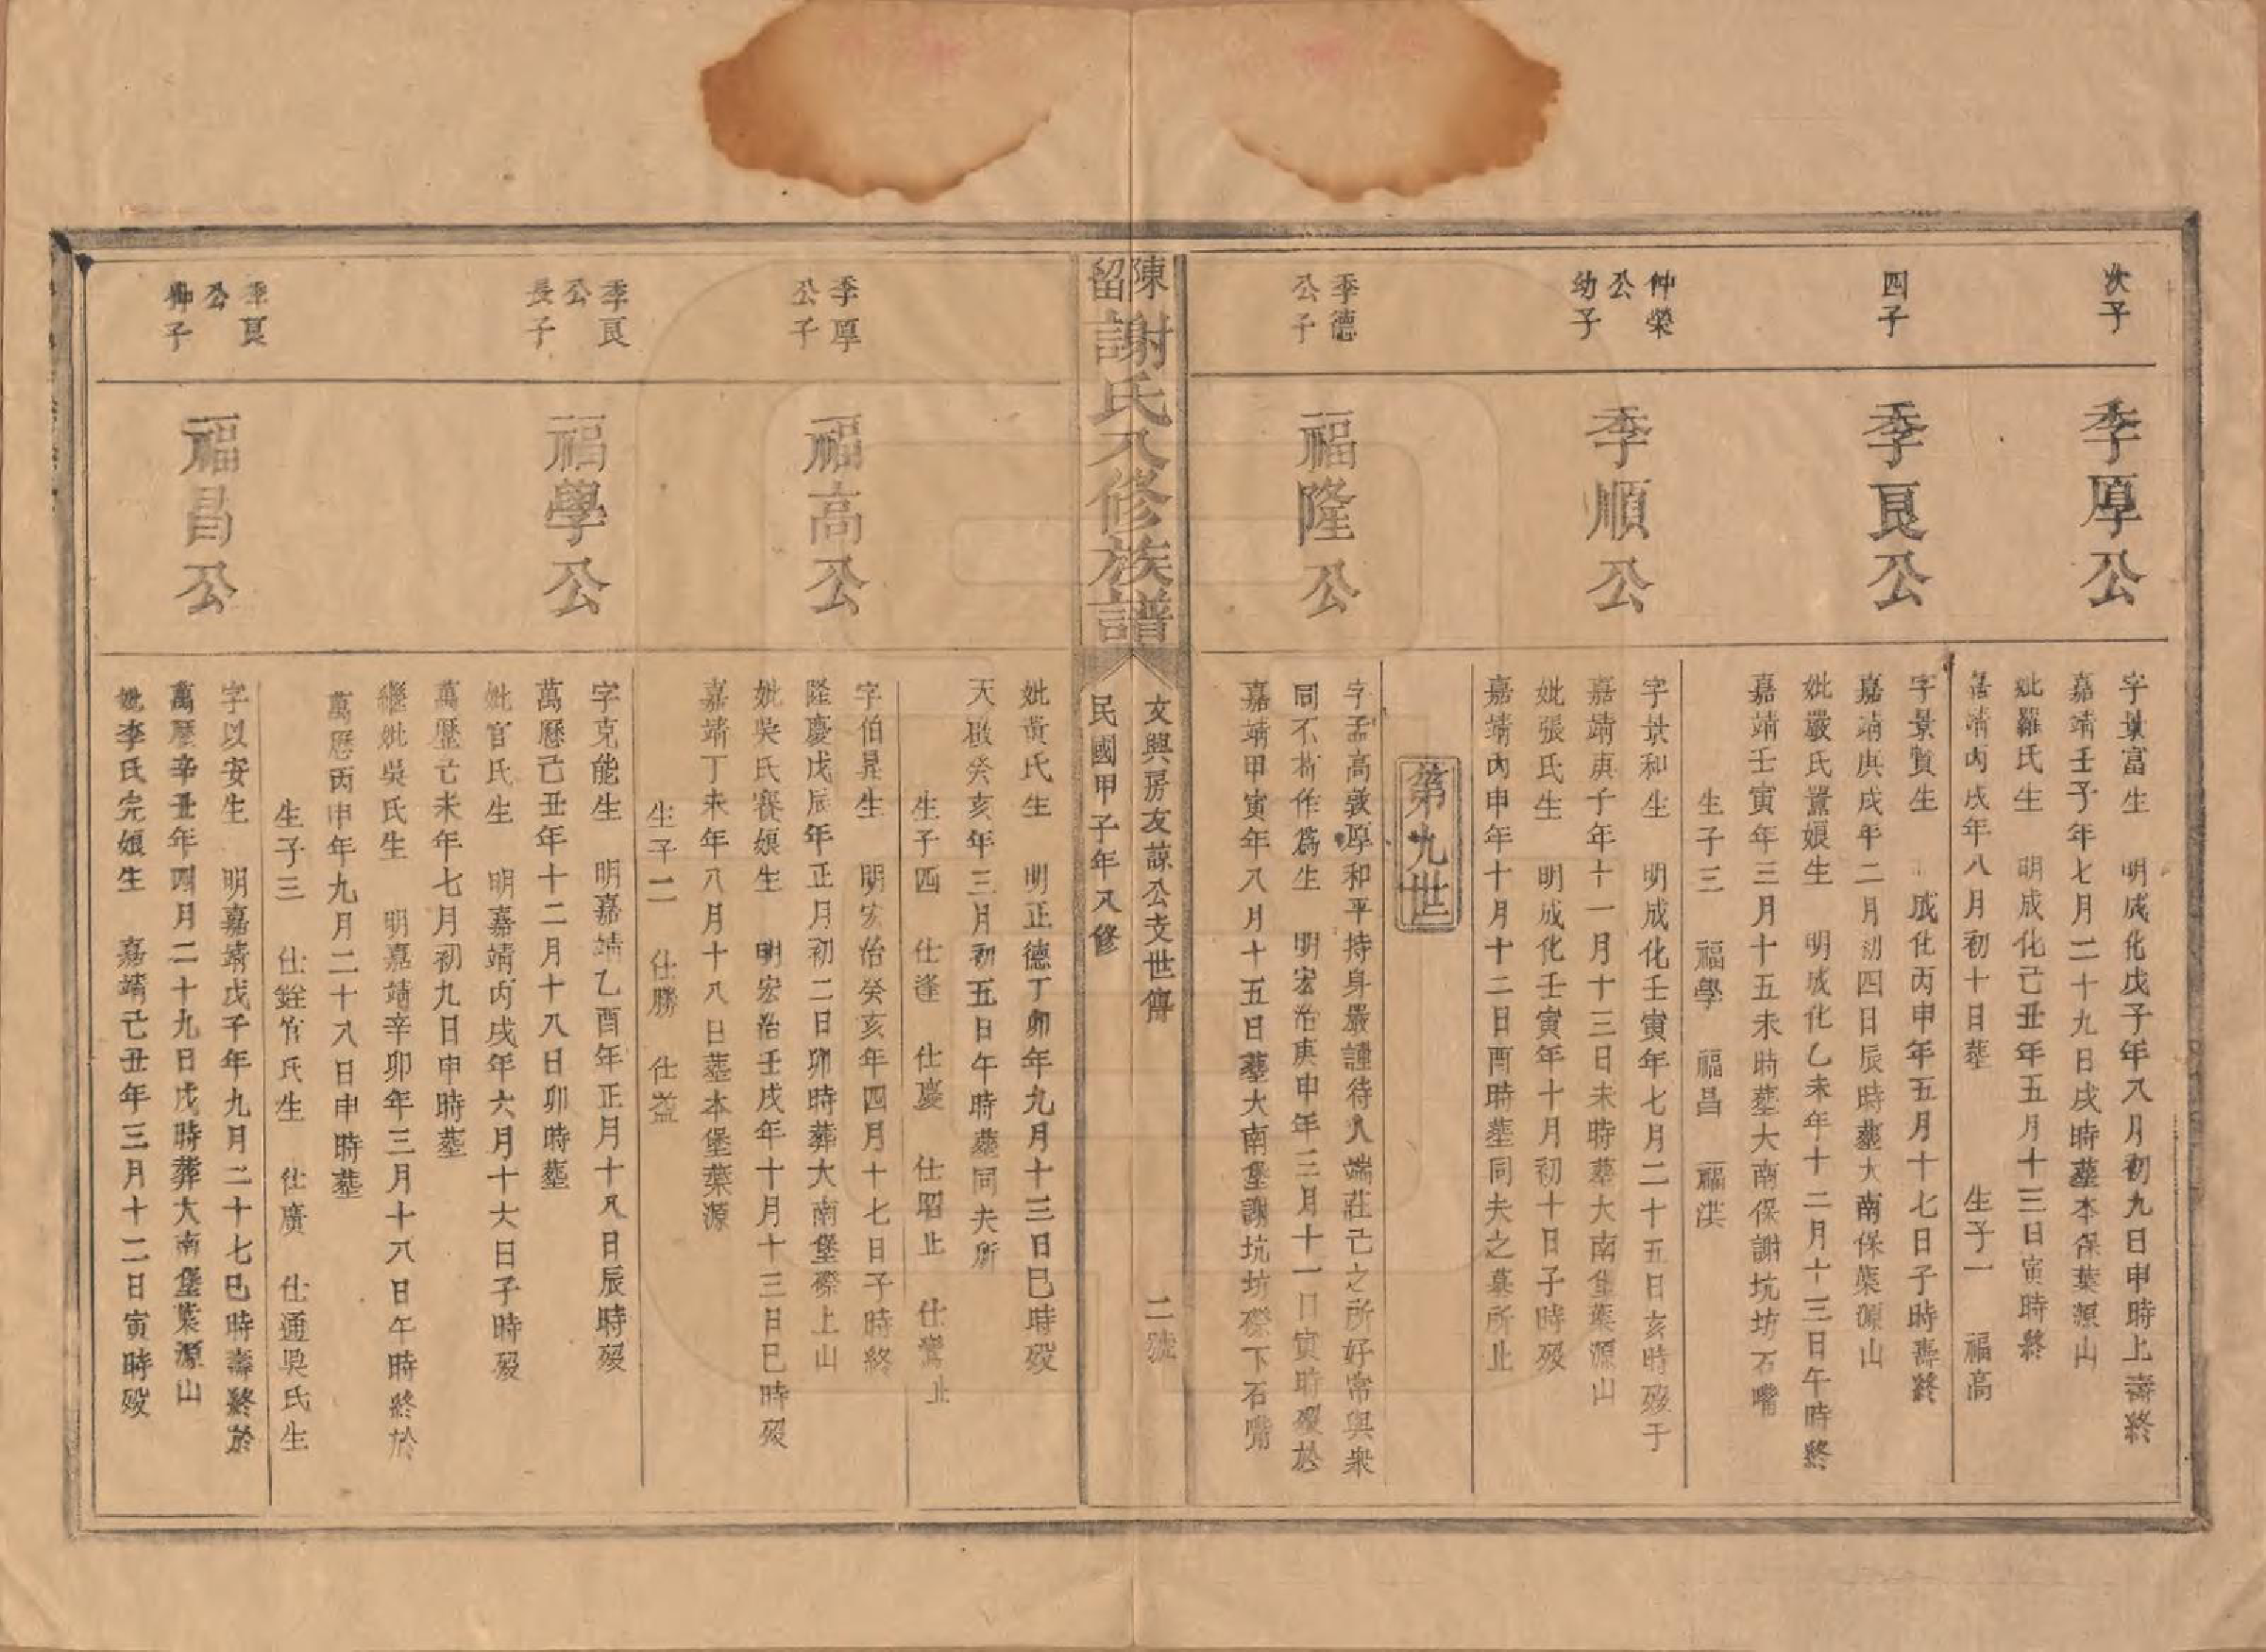 次子
季厚公
字景富生　明成化戊子年八月初九日申時上壽終
嘉靖壬子年七月二十九日戌時墓本保葉源山
妣羅氏生　明成化己丑年五月十三日寅時終
嘉靖丙戌年八月初十日墓　生子一　福高
四子
季良公
字景賢生　成化丙申年五月十七日子時壽終
嘉靖庚戌年二月初四日辰時墓大南保葉源山
妣嚴氏鸞娘生　明成化乙未年十二月十三日午時終
嘉靖壬寅年三月十五未時墓大南保謝坑坊石嘴
生子三　福學　福昌　福淇
仲榮
公
幼子
季順公
字景和生　明成化壬寅年七月二十五日亥時歿于
嘉靖庚子年十一月十三日未時墓大南堡葉源山
妣張氏生　明成化壬寅年十月初十日子時歿
嘉靖丙申年十月十二日酉時墓同夫之墓所止
第九世
季德
公子
福隆公
字孟高敦厚和平持身嚴謹待人端莊己之所好常與衆
同不妄作爲生　明宏治庚申年三月十一日寅時歿於
嘉靖甲寅年八月十五日墓大南堡謝坑坊磜下石嘴
陳留
謝氏八修族譜
文興房友諒公支世傳
二號
民國甲子年八修
妣黃氏生　明正德丁卯年九月十三日巳時歿
天啟癸亥年三月初五日午時墓同夫所
生子四　仕逢　仕慶　仕昭止　仕鸞止
季厚
公子
福高公
字伯昇生　明宏治癸亥年四月十七日子時終
隆慶戊辰年正月初二日卯時葬大南堡磜上山
妣吳氏賽娘生　明宏治壬戌年十月十三日巳時歿
嘉靖丁未年八月十八日墓本堡葉源
生子二　仕勝　仕益
季良
公
長子
福學公
字克能生　明嘉靖乙酉年正月十八日辰時歿
萬曆己丑年十二月十八日卯時墓
妣官氏生　明嘉靖丙戌年六月十六日子時歿
萬歷乙未年七月初九日申時墓
繼妣吳氏生　明嘉靖辛卯年三月十八日午時終於
萬歷丙申年九月二十八日申時墓
生子三　仕銓官氏生　仕廣　仕通吳氏生
季良
公
仲子
福昌公
字以安生　明嘉靖戊子年九月二十七巳時壽終於
萬歷辛丑年四月二十九日戌時葬大南堡葉源山
妣李氏完娘生　嘉靖己丑年三月十二日寅時歿